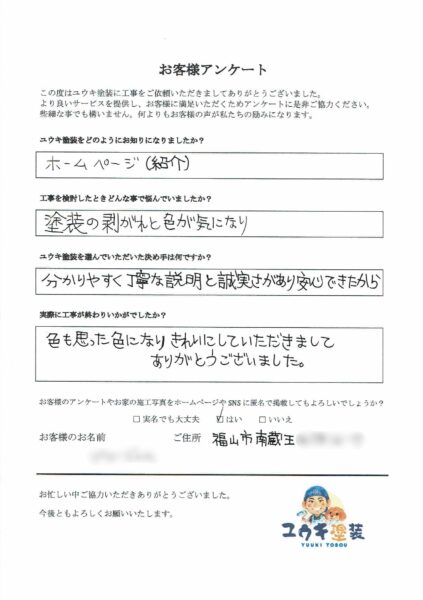 お客様アンケート
この度はユウキ塗装に工事をご依頼いただきましてありがとうございました。
より良いサービスを提供し、お客様に満足いただくためアンケートに是非ご協力ください。
些細な事でも構いません、何よりもお客様の声が私たちの励みになります。
ユウキ塗装をどのようにお知りになりましたか？
ホームページ（紹介）
工事を検討したときどんな事で悩んでいましたか？
塗装の剥がれと色が気になり
ユウキ塗装を選んでいただいた決め手は何ですか？
分かりやすく丁寧な説明と誠実さがあり安心できたから
実際に工事が終わりいかがでしたか？
色も思った色になりきれいにしていただきまして
ありがとうございました。
お客様のアンケートやお家の施工写真をホームページやSNSに匿名で掲載してもよろしいでしょうか？
□実名でも大丈夫 ☑はい □いいえ
お客様のお名前 ご住所 福山市南蔵王
お忙しい中ご協力いただきありがとうございました。
今後ともよろしくお願いいたします。
ユウキ塗装
YUUKI TOSOU